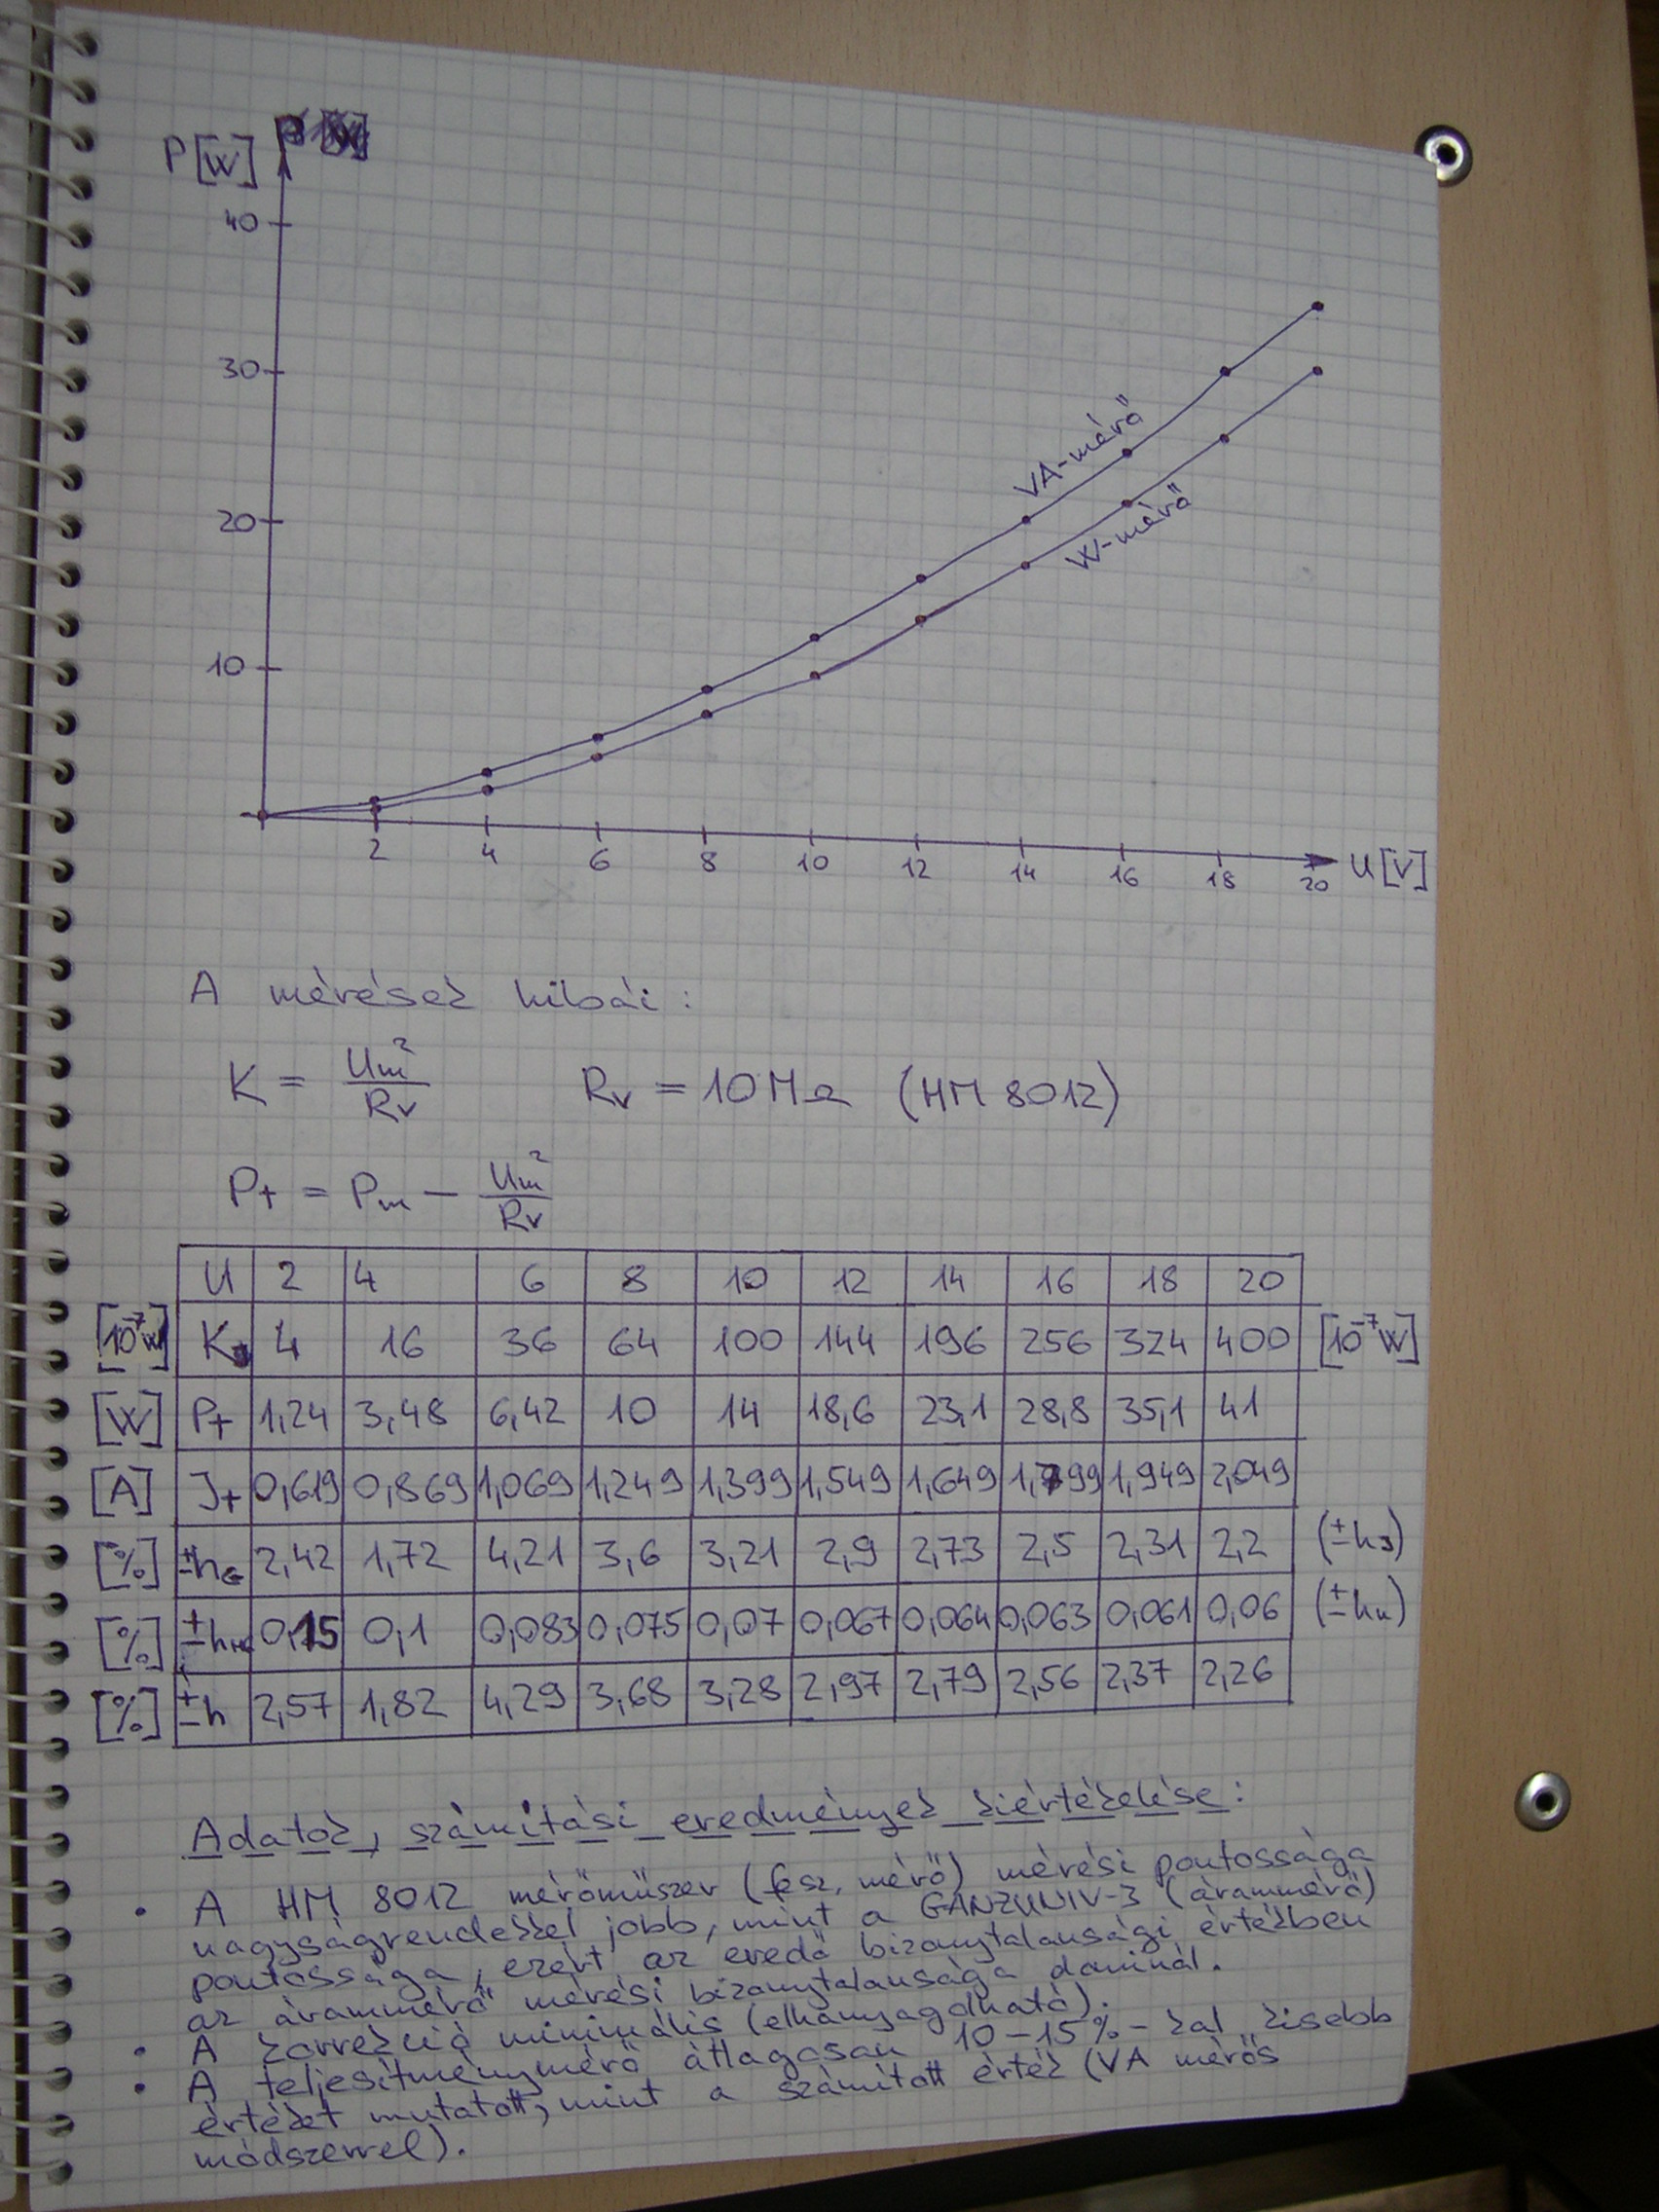 P[W]
40
30
20
10
VA-mérő
W-mérő
2 4 6 8 10 12 14 16 18 20 U[V]
A mérések hibái:
K = Um² / Rv    Rv = 10MΩ (HM 8012)
Pt = Pm − Um² / Rv
U 2 4 6 8 10 12 14 16 18 20
[10⁻⁷W] K 4 16 36 64 100 144 196 256 324 400 [10⁻⁷W]
[W] Pt 1,24 3,48 6,42 10 14 18,6 23,1 28,8 35,1 41
[A] It 0,619 0,869 1,069 1,249 1,399 1,549 1,649 1,799 1,949 2,049
[%] ±hG 2,42 1,72 4,21 3,6 3,21 2,9 2,73 2,5 2,31 2,2 (±hI)
[%] ±hH 0,15 0,1 0,083 0,075 0,07 0,067 0,064 0,063 0,061 0,06 (±hu)
[%] ±h 2,57 1,82 4,29 3,68 3,28 2,97 2,79 2,56 2,37 2,26
Adatok, számítási eredmények kiértékelése:
• A HM 8012 mérőműszer (fesz. mérő) mérési pontossága
nagyságrendekkel jobb, mint a GANZUNIV-3 (árammérő)
pontossága, ezért az eredő bizonytalansági értékben
az árammérő mérési bizonytalansága dominál.
• A korrekció minimális (elhanyagolható).
• A teljesítménymérő átlagosan 10-15%-kal kisebb
értéket mutatott, mint a számított érték (VA mérős
módszerrel).